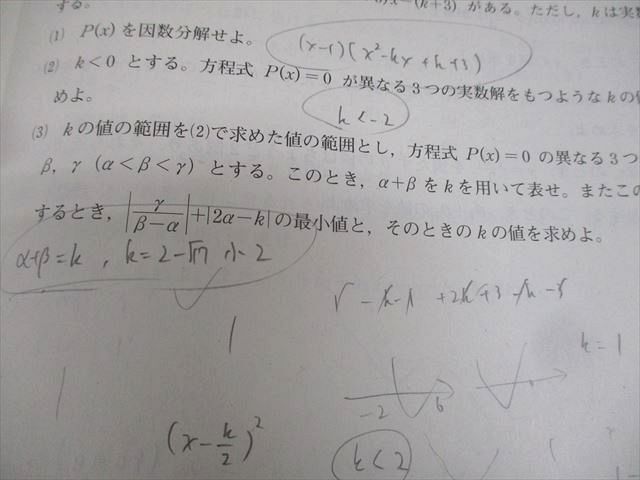 する。
x-(k+3) がある。ただし, kは実数
(1) P(x) を因数分解せよ。
(x-1)(x²-kx+k+3)
(2) k<0 とする。方程式 P(x)=0 が異なる3つの実数解をもつようなkの値
めよ。
k<-2
(3) kの値の範囲を(2)で求めた値の範囲とし, 方程式 P(x)=0 の異なる3つ
β, γ (α<β<γ) とする。このとき, α+β をkを用いて表せ。またこの
するとき, |γ/(β-α)|+|2α-k| の最小値と, そのときのkの値を求めよ。
α+β=k , k=2-√17
k=1
-2 6
(x-k/2)²
k<2